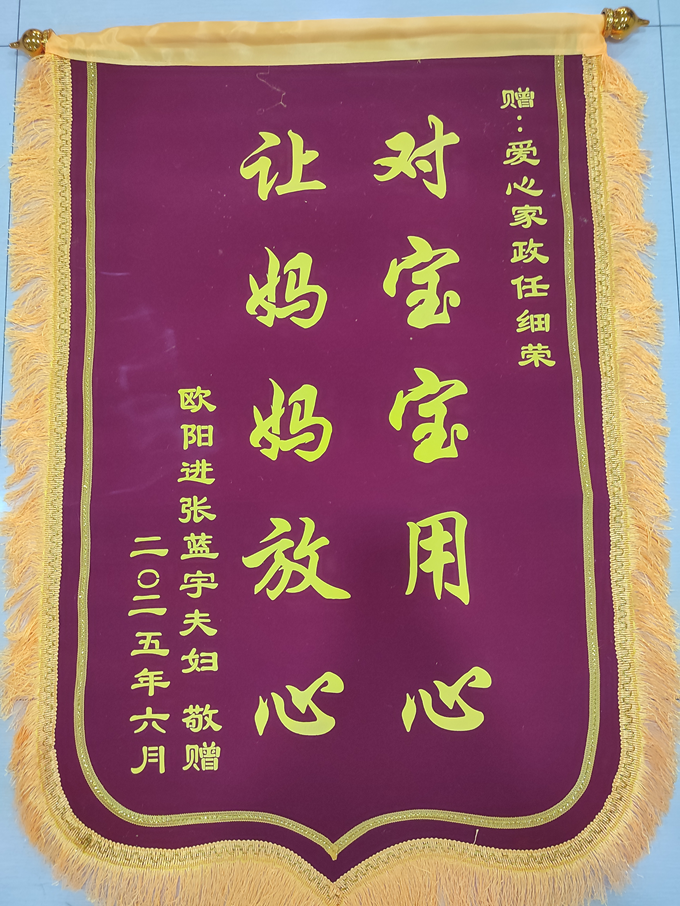 赠：爱心家政任细荣
对宝宝用心
让妈妈放心
欧阳进张蓝宇夫妇 敬赠
二〇二五年六月